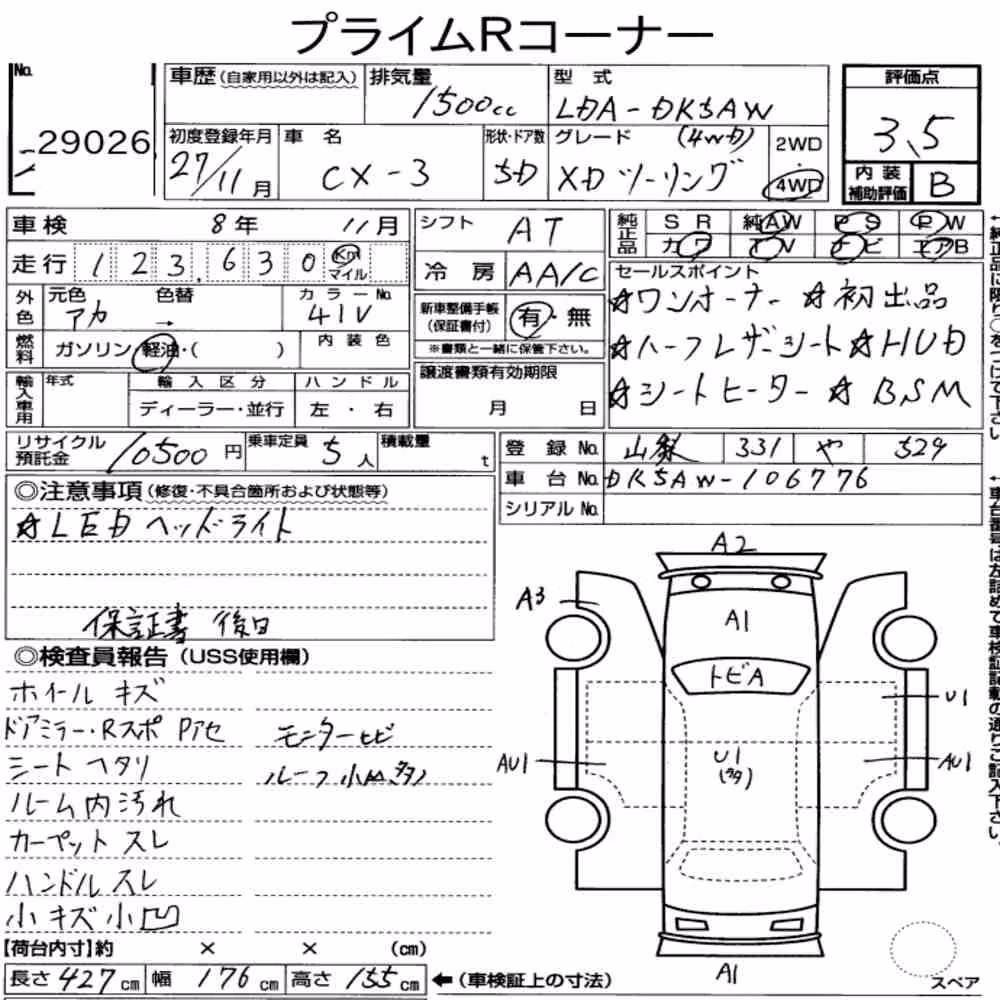 プライムRコーナー
No. 29026
車歴(自家用以外は記入)
排気量 1500cc
型式 LDA-DK5AW
評価点 3.5
内装補助評価 B
初度登録年月 27/11月
車名 CX-3
形状・ドア数 5D
グレード (4WD) XDツーリング
2WD・4WD
車検 8年 11月
走行 123,630 Km マイル
外色 元色 アカ 色替 →
カラーNo. 41V
燃料 ガソリン・軽油・( )
内装色
輸入車用 年式
輸入区分 ディーラー・並行
ハンドル 左・右
シフト AT
冷房 AA/C
新車整備手帳(保証書付) 有・無
※書類と一緒に保管下さい。
譲渡書類有効期限
月 日
純正品 SR 純AW PS PW
カワ TV ナビ エアB
セールスポイント
☆ワンオーナー ☆初出品
☆ハーフレザーシート☆HUD
☆シートヒーター ☆BSM
リサイクル預託金 10500円
乗車定員 5人
積載量 t
登録No. 山梨 331 や 529
車台No. DK5AW-106776
シリアルNo.
◎注意事項(修復・不具合箇所および状態等)
☆LEDヘッドライト
保証書 後日
◎検査員報告(USS使用欄)
ホイールキズ
ドアミラー・Rスポ Pアセ モニターヒビ
シートヘタリ ルーフ小凹多
ルーム内汚れ
カーペットスレ
ハンドルスレ
小キズ小凹
【荷台内寸】約 × × (cm)
長さ427cm 幅176cm 高さ155cm ←(車検証上の寸法)
A2
A3
A1
トビA
U1
AU1
U1
(多)
AU1
A1
スペア
←純正品に限り○をつけて下さい
←車台番号は左詰めで車検証記載の通りご記入下さい。